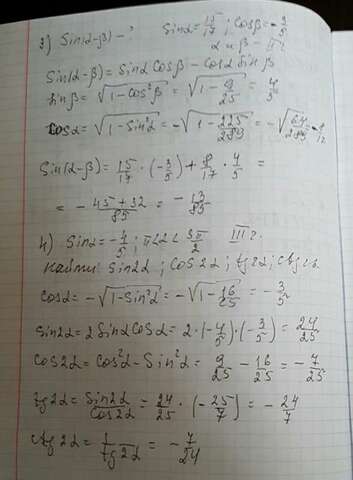 3) Sin(α-β) - ? Sinα = 15/17 ; Cosβ = -3/5
α и β - II ч.
Sin(α-β) = Sinα Cosβ - Cosα Sinβ
Sinβ = √(1-Cos²β) = √(1 - 9/25) = 4/5
Cosα = √(1-Sin²α) = -√(1 - 225/289) = -√(64/289) = -8/17
Sin(α-β) = 15/17 · (-3/5) + 8/17 · 4/5 =
= -45+32/85 = -13/85
4) Sinα = -4/5 ; π<α< 3π/2 III ч.
Найти: Sin2α ; Cos2α ; tg2α ; ctg2α.
Cosα = -√(1-Sin²α) = -√(1 - 16/25) = -3/5
Sin2α = 2 Sinα Cosα = 2·(-4/5)·(-3/5) = 24/25
Cos2α = Cos²α - Sin²α = 9/25 - 16/25 = -7/25
tg2α = Sin2α/Cos2α = 24/25 · (-25/7) = -24/7
ctg2α = 1/tg2α = -7/24